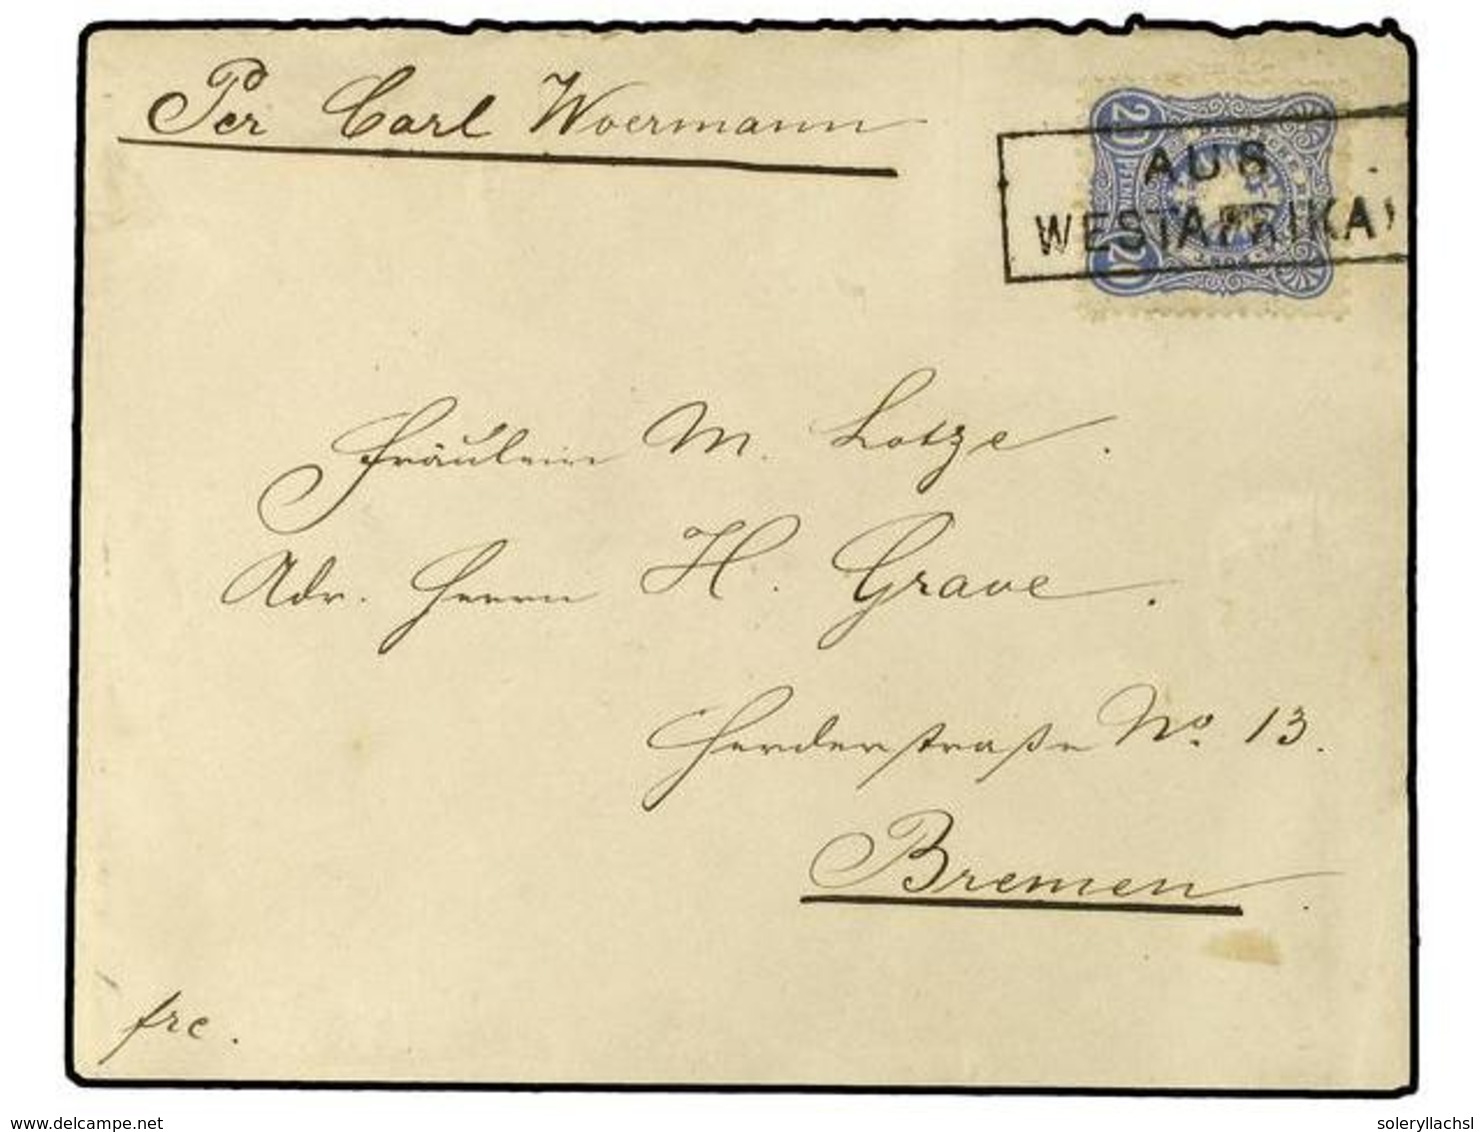 Per Carl Woermann
20 PFENNIG 20
AUS
WESTAFRIKA
Fräulein M. Lotze.
Adr. Herrn H. Grave.
Herderstraße No. 13.
Bremen.
frc.
delcampe.net
soleryllachsl